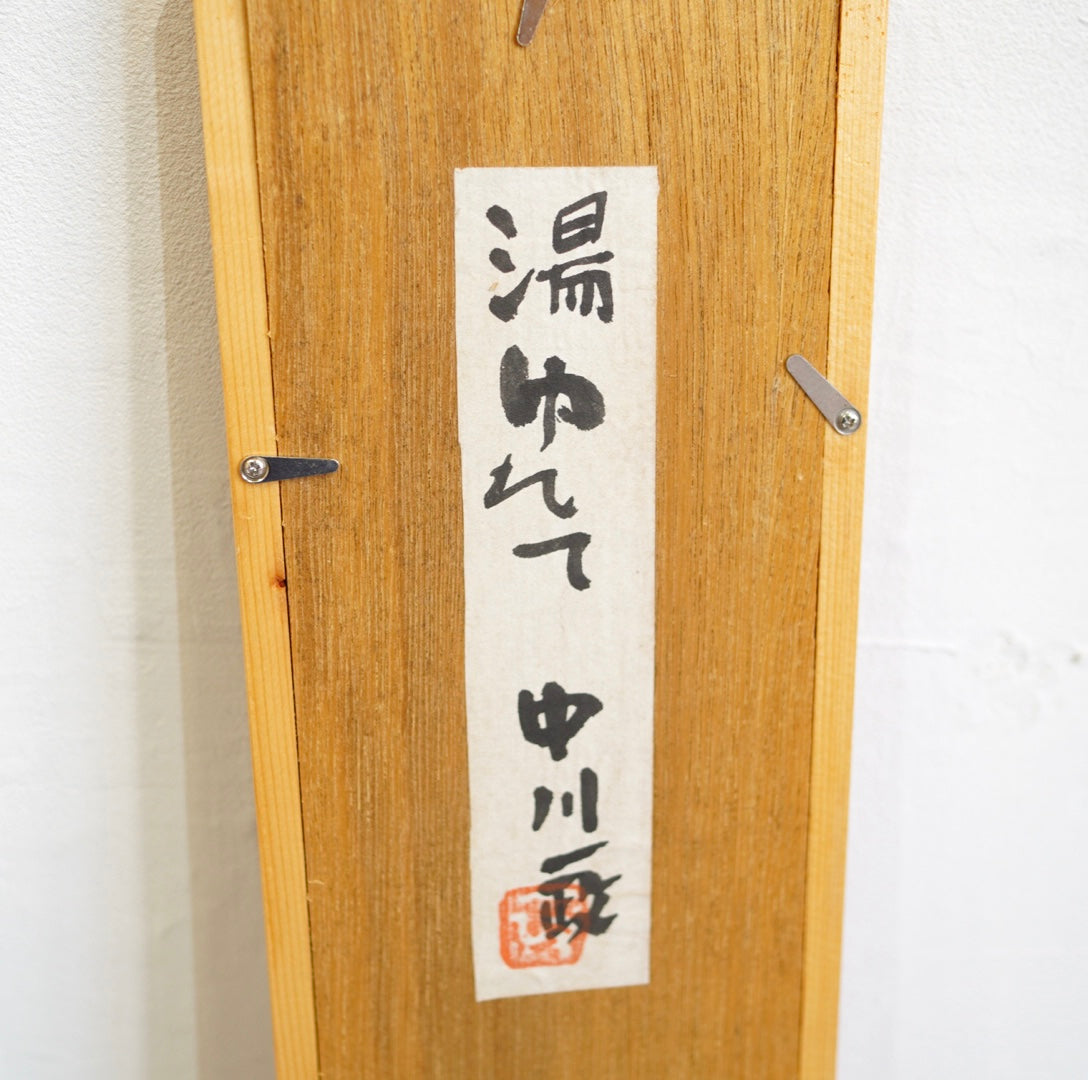 湯ゆれて 中川一政